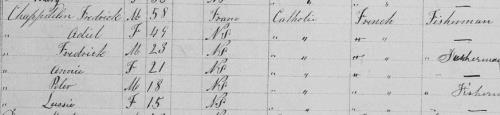 Chappelien Fredrick M 58 Franc Catholic French Fisherman
" Adiel F 49 N.S. " " "
" Fredrick M 23 N.S. " " " Fisherman
" Annie F 21 N.S. " " "
" Peter M 18 N.S. " " " Fisherm
" Lussie F 15 N.S. " " "